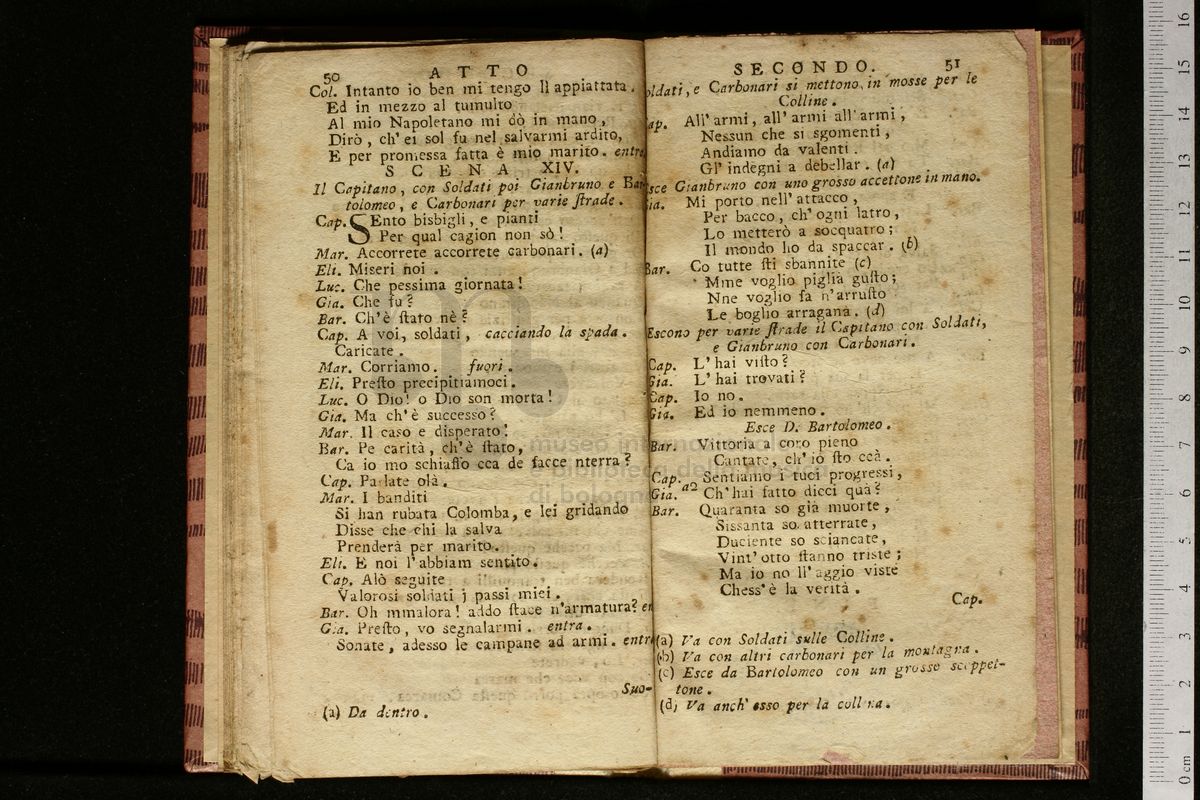 50 ATTO
Col. Intanto io ben mi tengo lì appiattata.
Ed in mezzo al tumulto
Al mio Napoletano mi dò in mano,
Dirò, ch' ei sol fu nel salvarmi ardito,
E per promessa fatta è mio marito. entra
SCENA XIV.
Il Capitano, con Soldati poi Gianbruno e Bar-
tolomeo, e Carbonari per varie ſtrade.
Cap. SEnto bisbigli, e pianti
Per qual cagion non sò!
Mar. Accorrete accorrete carbonari. (a)
Eli. Miseri noi.
Luc. Che pessima giornata!
Gia. Che fu?
Bar. Ch'è ſtato nè?
Cap. A voi, soldati, cacciando la spada.
Caricate.
Mar. Corriamo. fuori.
Eli. Preſto precipitiamoci.
Luc. O Dio! o Dio son morta!
Gia. Ma ch'è successo?
Mar. Il caso e disperato!
Bar. Pe carità, ch'è ſtato,
Ca io mo schiaffo cca de facce nterra?
Cap. Parlate olà.
Mar. I banditi
Si han rubata Colomba, e lei gridando
Disse che chi la salva
Prenderà per marito.
Eli. E noi l'abbiam sentito.
Cap. Alò seguite
Valorosi soldati j passi miei.
Bar. Oh mmalora! addo ſtace n'armatura? en
Gia. Preſto, vo segnalarmi. entra.
Sonate, adesso le campane ad armi. entra
Suo-
(a) Da dentro.
SECONDO. 51
oldati, e Carbonari si mettono in mosse per le
Colline.
ap. All' armi, all' armi all' armi,
Nessun che si sgomenti,
Andiamo da valenti.
Gl' indegni a debellar. (a)
Esce Gianbruno con uno grosso accettone in mano.
Gia. Mi porto nell' attacco,
Per bacco, ch' ogni latro,
Lo metterò a socquatro;
Il mondo ho da spaccar. (b)
Bar. Co tutte ſti sbannite (c)
Mme voglio piglià guſto;
Nne voglio fa n'arruſto
Le boglio arragana. (d)
Escono per varie ſtrade il Capitano con Soldati,
e Gianbruno con Carbonari.
Cap. L' hai viſto?
Gia. L' hai trovati?
Cap. Io no.
Gia. Ed io nemmeno.
Esce D. Bartolomeo.
Bar. Vittoria a coro pieno
Cantate, ch' io ſto ccà.
Cap. Sentiamo i tuoi progressi,
Gia. a2 Ch' hai fatto dicci quà?
Bar. Quaranta so già muorte,
Sissanta so atterrate,
Duciente so sciancate,
Vint' otto ſtanno triste;
Ma io no ll' aggio viste
Chess' è la verità.
Cap.
(a) Va con Soldati sulle Colline.
(b) Va con altri carbonari per la montagna.
(c) Esce da Bartolomeo con un grosso scoppet-
tone.
(d) Va anch' esso per la collina.
museo internazionale
e biblioteca della musica
di bologna